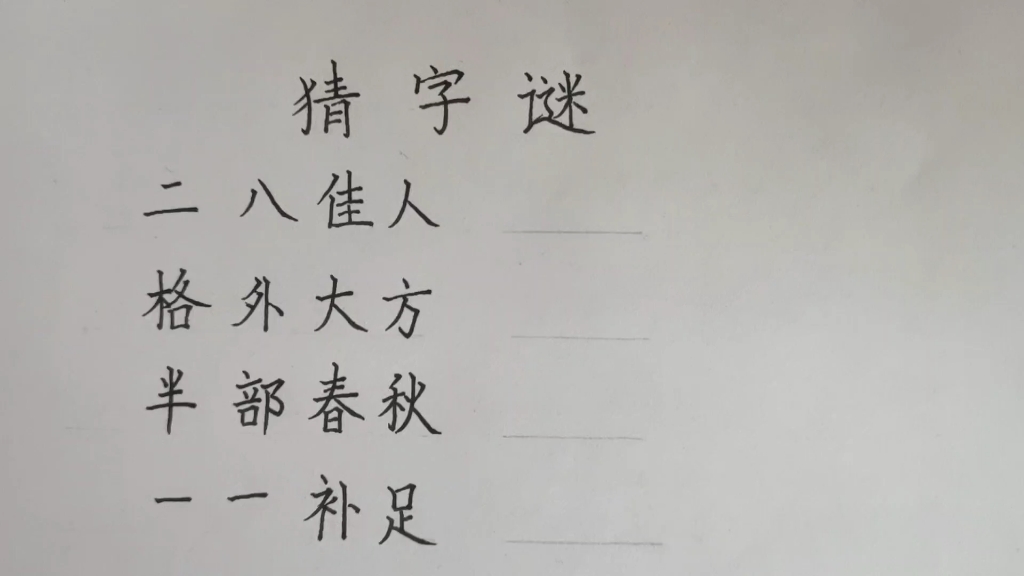 猜字谜
二八佳人
格外大方
半部春秋
一一补足